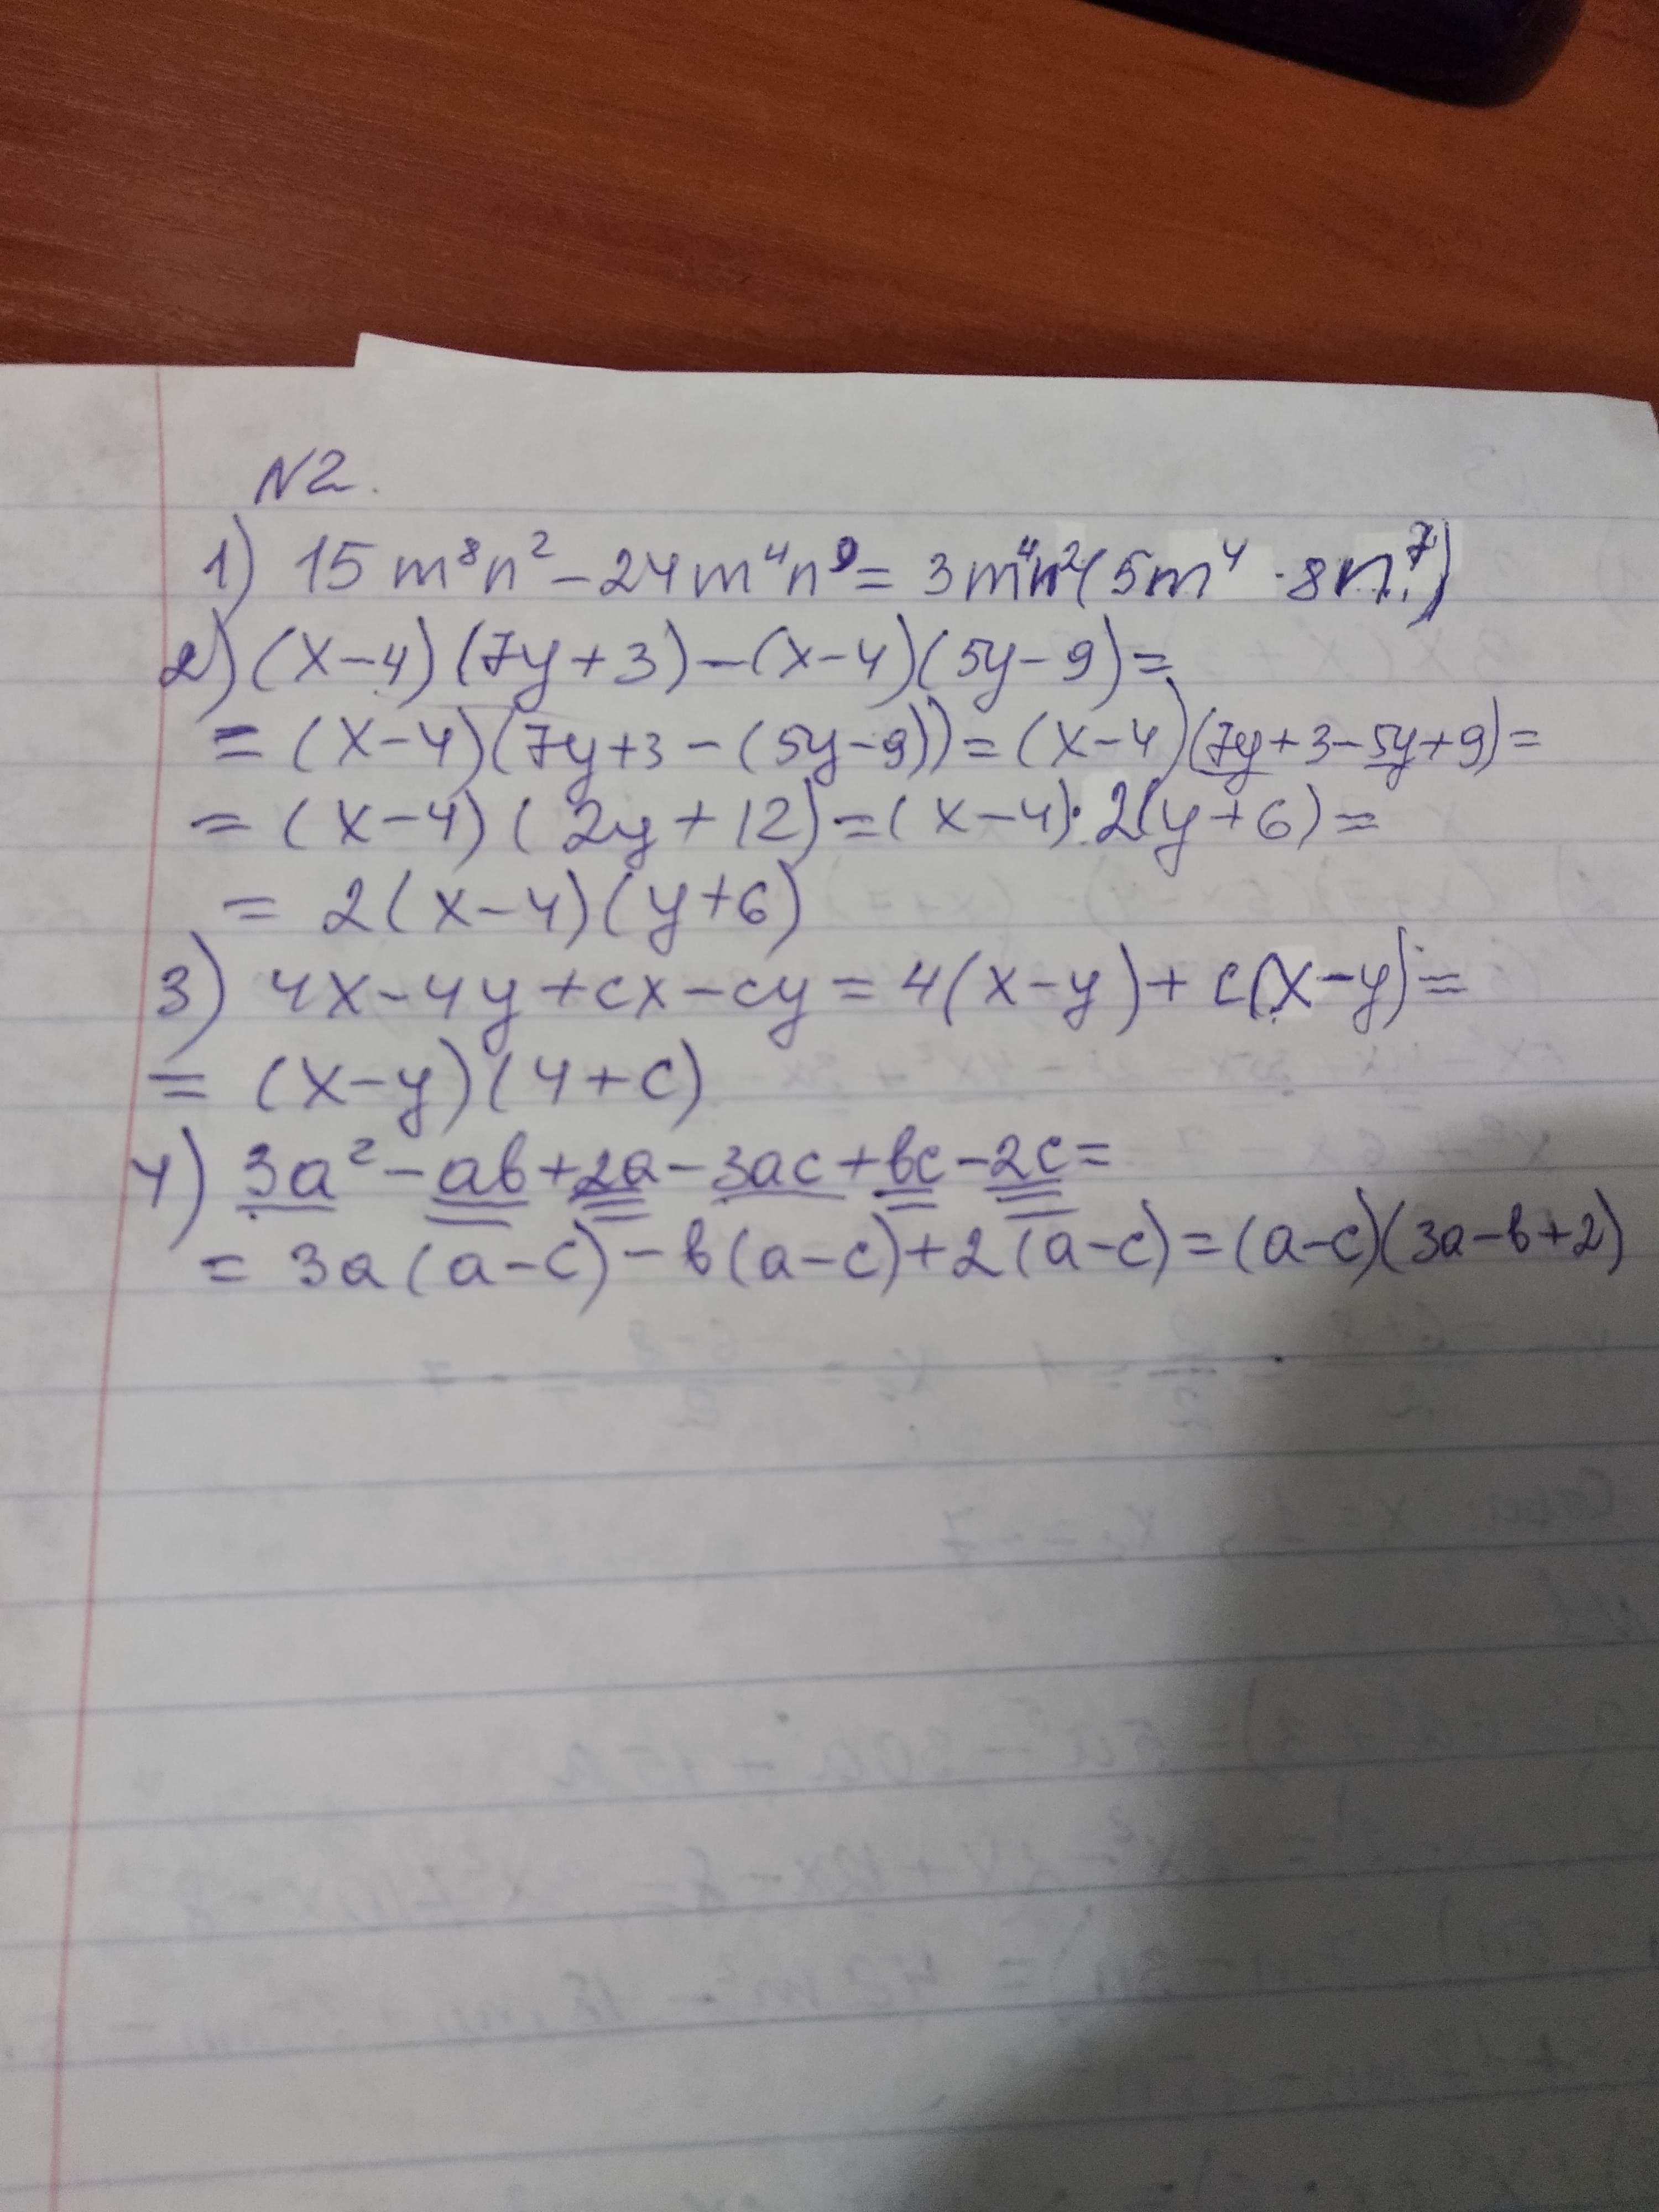 N2.
1) 15m⁸n² - 24m⁴n⁹ = 3m⁴n²(5m⁴ · 8n⁷)
2) (x-4)(7y+3)-(x-4)(5y-9)=
= (x-4)(7y+3-(5y-9))=(x-4)(7y+3-5y+9)=
= (x-4)(2y+12)=(x-4)·2(y+6)=
= 2(x-4)(y+6)
3) 4x-4y+cx-cy=4(x-y)+c(x-y)=
= (x-y)(4+c)
4) 3a²-ab+2a-3ac+bc-2c=
= 3a(a-c)-b(a-c)+2(a-c)=(a-c)(3a-b+2)